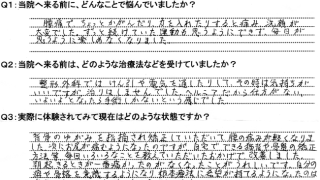 Q1：当院へ来る前に、どんなことで悩んでいましたか？
腰痛で、ちょっとかがんだり、力を入れたりすると痛み、洗濯が
大変でした。ずっと続けていた運動も思うようにできず、毎日が
思うように楽しめなくなりました。
Q2：当院へ来る前は、どのような治療法などを受けていましたか？
整形外科では けん引や電気を通したりして、その時は気持ちが
いいですが 治りはしませんでした。ヘルニアだから仕方がない。
いよいよとなったら手術しかないという感じでした。
Q3：実際に体験されてみて現在はどのような状態ですか？
背骨のゆがみを指摘され矯正していただいて腰の痛みが軽くなりま
した。次にお尻が痛むようになったのですが、自宅でできる体操や骨盤の矯正
方法等、毎回いろいろなことを教えていただいたおかげで 改善しました。
朝起きるときが一番痛かったのがなくなったことがうれしいです。自分の